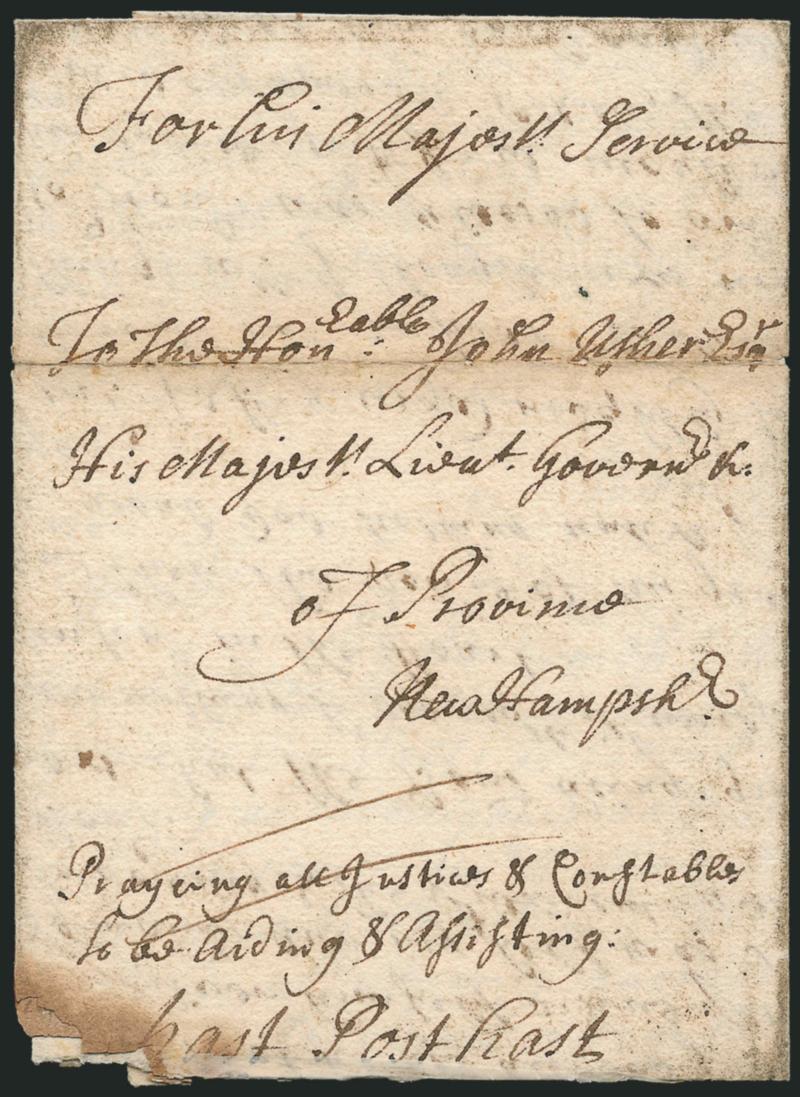 For his Majesty's Service
To the Hon:eable John Usher Esqr
His Majesty's Lieut. Govern.r &c:
of Province
New Hampsh.e
Prayeing all Justices & Constables
to be Aiding & Assisting:
hast Post hast